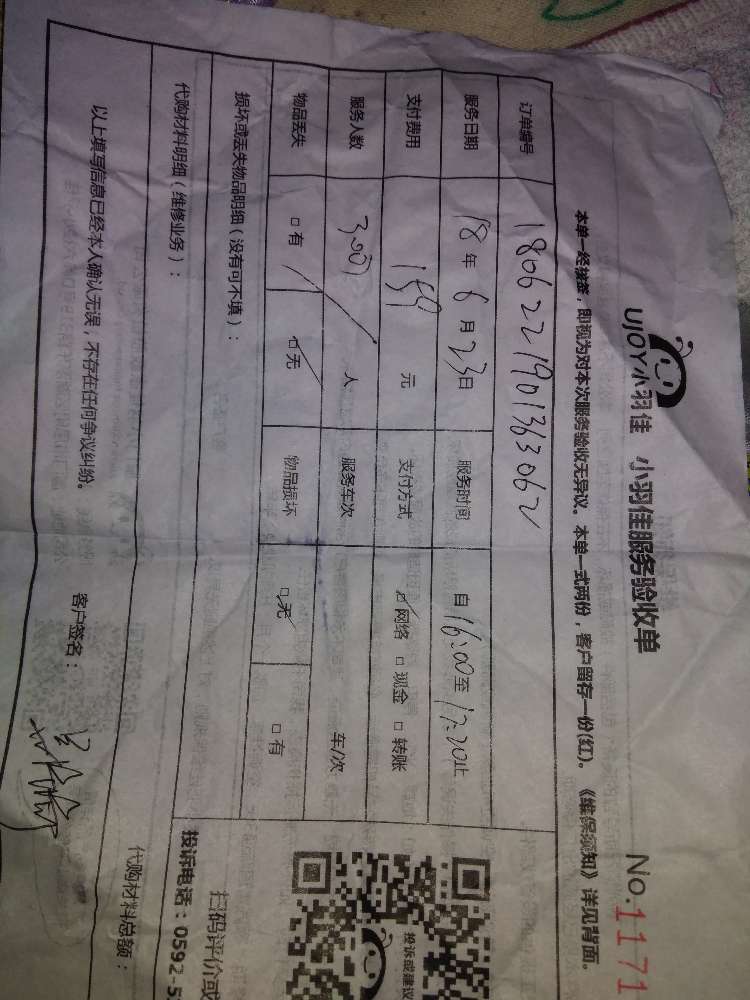 UJOY小羽佳 小羽佳服务验收单
No.1171
本单一经抽签，即视为对本次服务验收无异议。本单一式两份，客户留存一份(红)。《维保须知》详见背面。
订单编号 1806221901363062
服务日期 18年6月23日 服务时间 自16:00至17:20止
支付费用 159元 支付方式 网络 现金 转账
服务人数 人 服务车次 车/次
物品丢失 有 无 物品损坏 无 有
损坏或丢失物品明细（没有可不填）：
代购材料明细（维修业务）：
代购材料总额：
以上填写信息已经本人确认无误，不存在任何争议纠纷。
客户签名：
投诉或建议
扫码评价或
投诉电话：0592-5